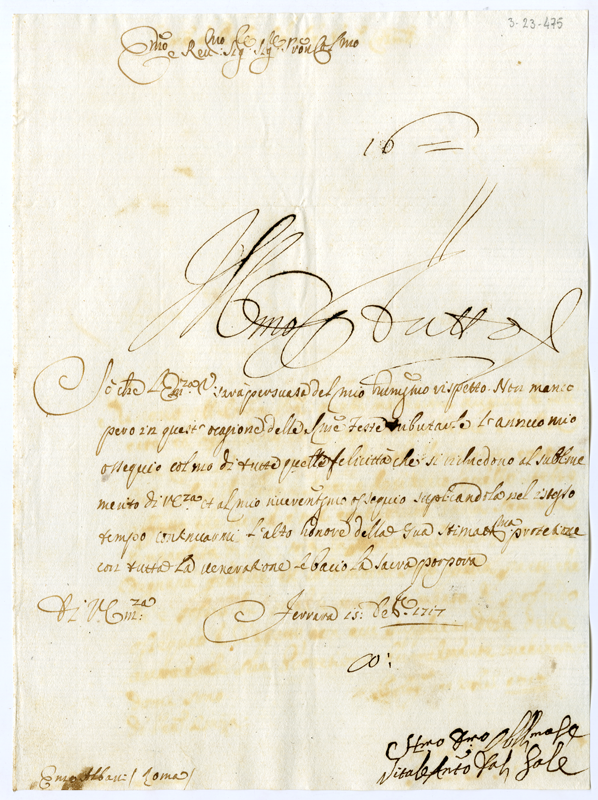 3-23-475
Emo e Revmo Sig.r Sig.r Pron Colmo
16
Illmo
tutto
Sò che L'Em.za V. sarà persuasa del mio humgmo rispetto. Non manco
però in questa ocagione delle Sme Feste tributarle l'annuo mio
ossequio colmo di tutte quelle felicittà che si richiedono al sublime
merito di V.E.za et al mio riverentmo osseguio suplicandola nel istesso
tempo continuarmi l'alto honore della sua stimatma protezione
con tutta la veneratione le bacio la sacra porpora
Di V. Em.za
Ferrara 15: Xbre 1717
Vitale Anto Dal Sale
Emo Albani / Roma /